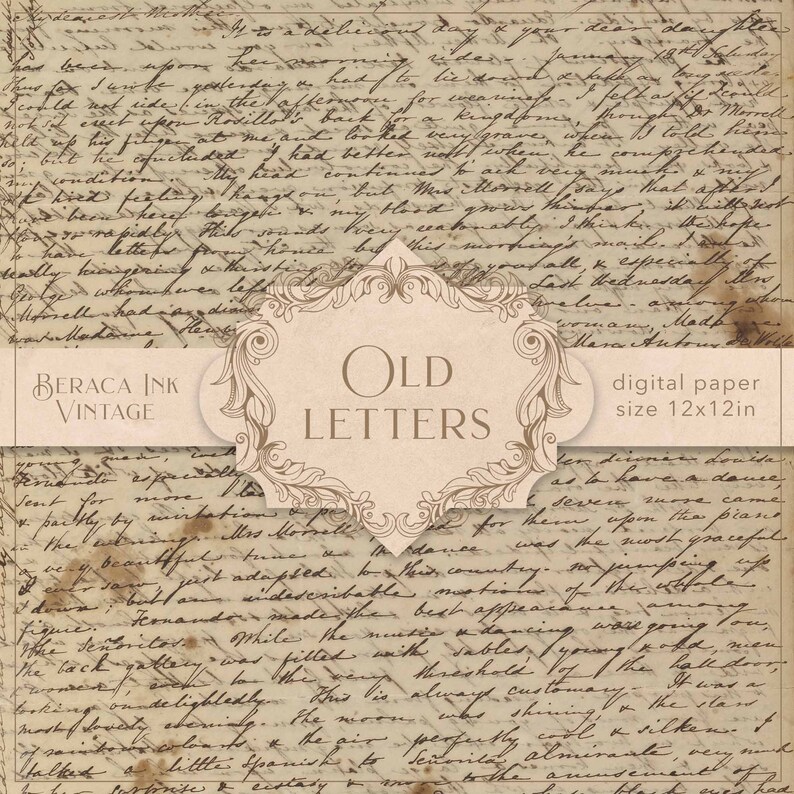 My dearest Mother
It is a delicious day & your dear daughter
has been upon her morning ride. January 18th Saturday
Thus far I wrote yesterday & had to lie down & take a long
I could not ride in the afternoon for weariness. I felt as if I could
not sit erect upon Rosillo's back for a kingdom, though Dr Morrell
held up his finger at me and looked very grave, when I told him
so, but he concluded I had better not, when he comprehended
my condition. My head continues to ach very much & my
tired feeling hangs on, but Mrs Morrell says that after I
have been here longer & my blood grows thinner it will not
flow so rapidly. This sounds very reasonably I think. We hope
to have letters from home by this morning's mail. I am
really hungering & thirsting of you all, & especially of
George whom we left Last Wednesday Mrs
Morrell had a twelve - among whom
was Madame woman, Mada
Maria Antonia De Wolfe
BERACA INK
VINTAGE
OLD
LETTERS
digital paper
size 12x12in
young men, dinner Louisa
Fernando especially as to have a dance,
sent for more seven more came
& partly by invitation & for them upon the piano
in the evening. Mrs Morrell was the most graceful
a very beautiful tune & the dance
I ever saw, just adapted to this country - no jumping up
& down, but an indescribable motion of the whole
figure. Fernando made the best appearance among
the Señoritos. While the music & dancing were going on,
the back gallery was filled with sables, young & old, men
& women, even to the very threshold of the hall door,
looking on delightedly. This is always customary. It was a
most lovely evening. The moon was shining, & the stars
of rainbow colours & the air perfectly cool & silken. I
talked a little Spanish to Señorita Almirante, very much
to her surprise & ecstasy & to the amusement of
black eyes had